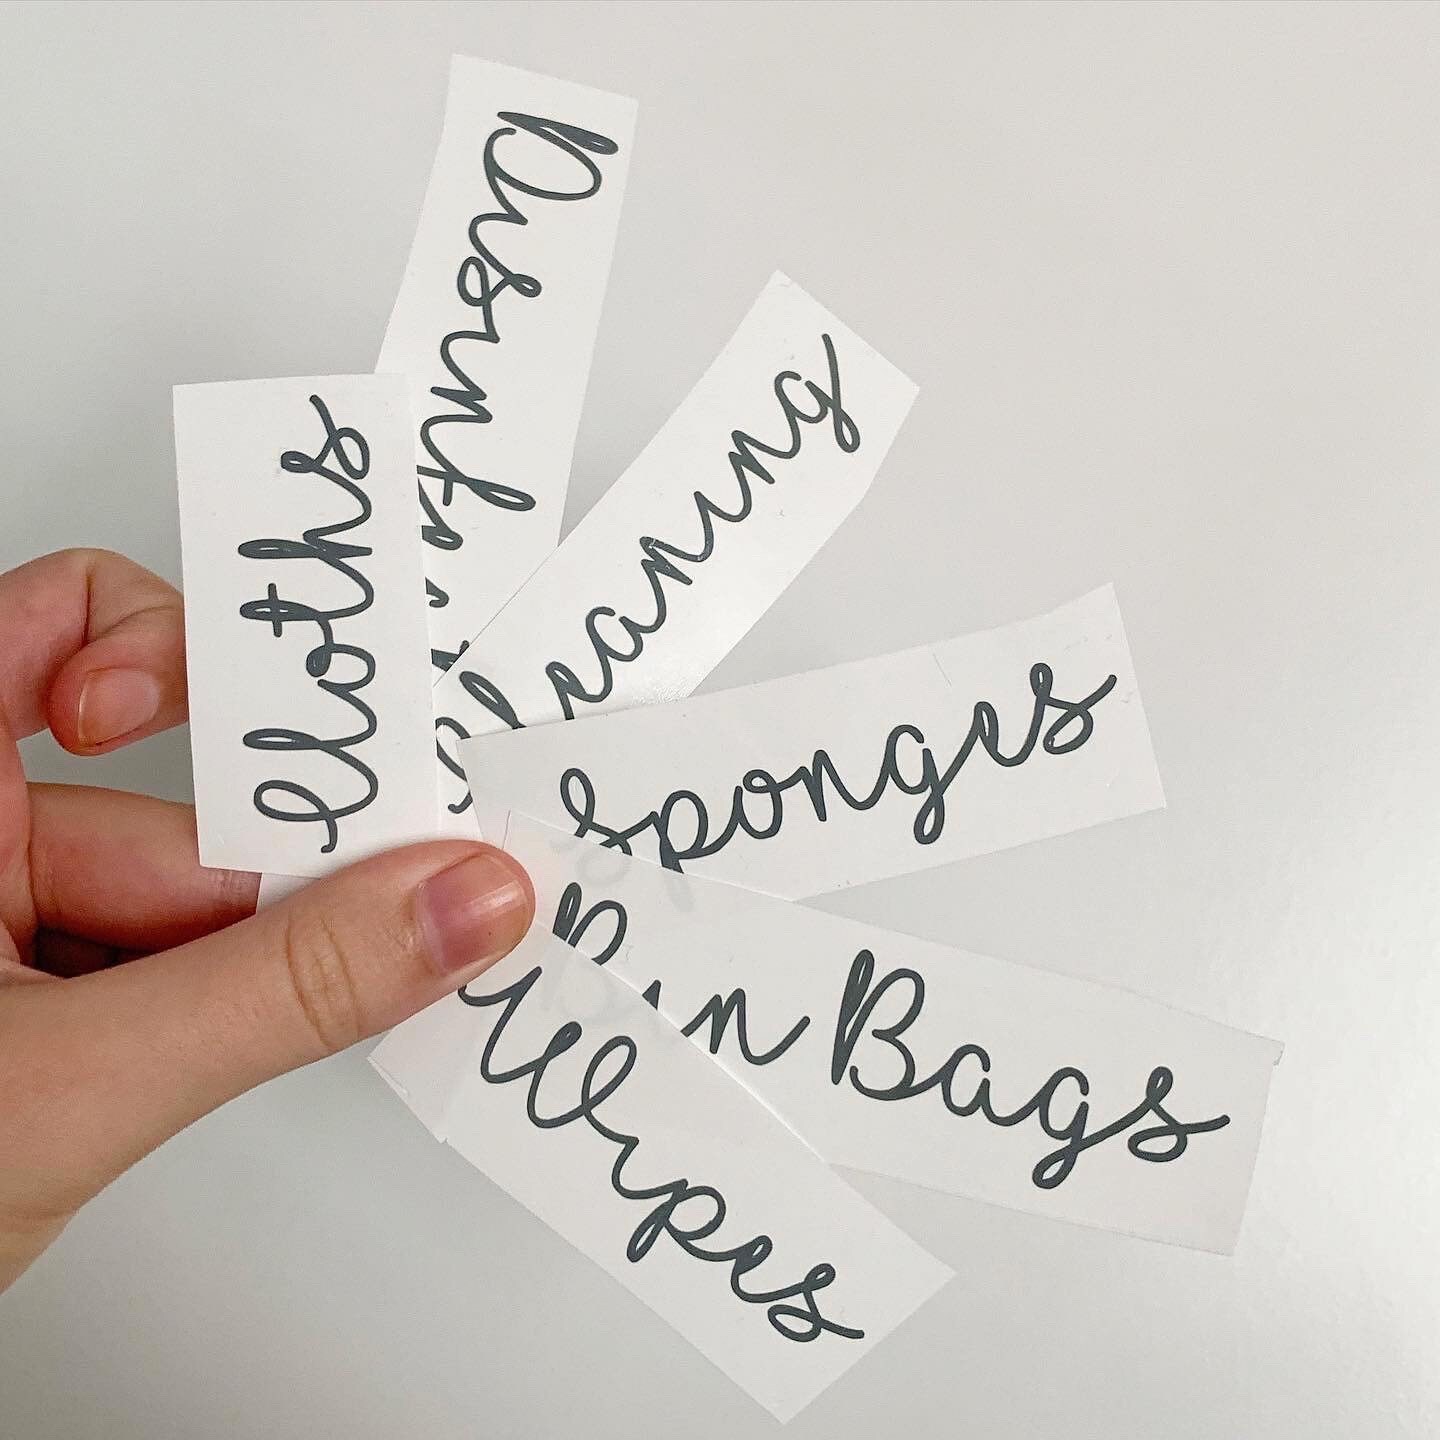 Cloths
Cleaning
Sponges
Bin Bags
Wipes